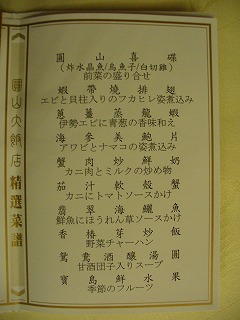 圓山大飯店
精選菜譜
圓山喜碟
(炸水晶魚/烏魚子/白切雞)
前菜の盛り合せ
蝦帶燒排翅
エビと貝柱入りのフカヒレ姿煮込み
蔥薑蒸龍蝦
伊勢エビに青葱の香味和え
海參美鮑片
アワビとナマコの姿煮込み
蟹肉炒鮮奶
カニ肉とミルクの炒め物
茄汁軟殼蟹
カニにトマトソースかけ
翡翠海鱺魚
鮮魚にほうれん草ソースかけ
香椿芽炒飯
野菜チャーハン
鴛鴦酒釀湯圓
甘酒団子入りスープ
寶島鮮水果
季節のフルーツ